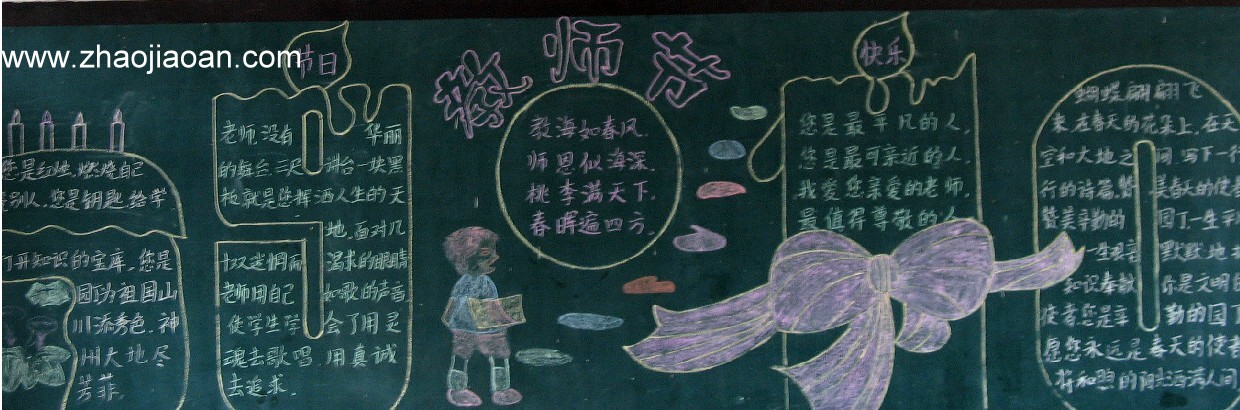 www.zhaojiaoan.com
教师节
节日
快乐
您是红烛,燃烧自己
别人,您是钥匙,给学
打开知识的宝库,您是
园丁,为祖国山
川添秀色,神
州大地尽
芳菲。
老师没有 华丽
的舞台,三尺 讲台一块黑
板就是您挥洒人生的天
地,面对几
十双迷惘而 渴求的眼睛
老师用自己 如歌的声音
使学生学 会了用灵
魂去歌唱,用真诚
去追求。
教海如春风,
师恩似海深,
桃李满天下,
春晖遍四方。
您是最平凡的人,
您是最可亲近的人,
我爱您亲爱的老师,
最值得尊敬的人
蝴蝶翩翩飞
来,在春天的花朵上,在天
空和大地之 间,写下一行
行的诗篇,赞 美春天的使
赞美辛勤的 园丁一生平
一生艰辛 默默地
知识奉献 你是文明的
使者您是辛 勤的园丁
愿您永远是春天的使者
将和煦的阳光洒满人间